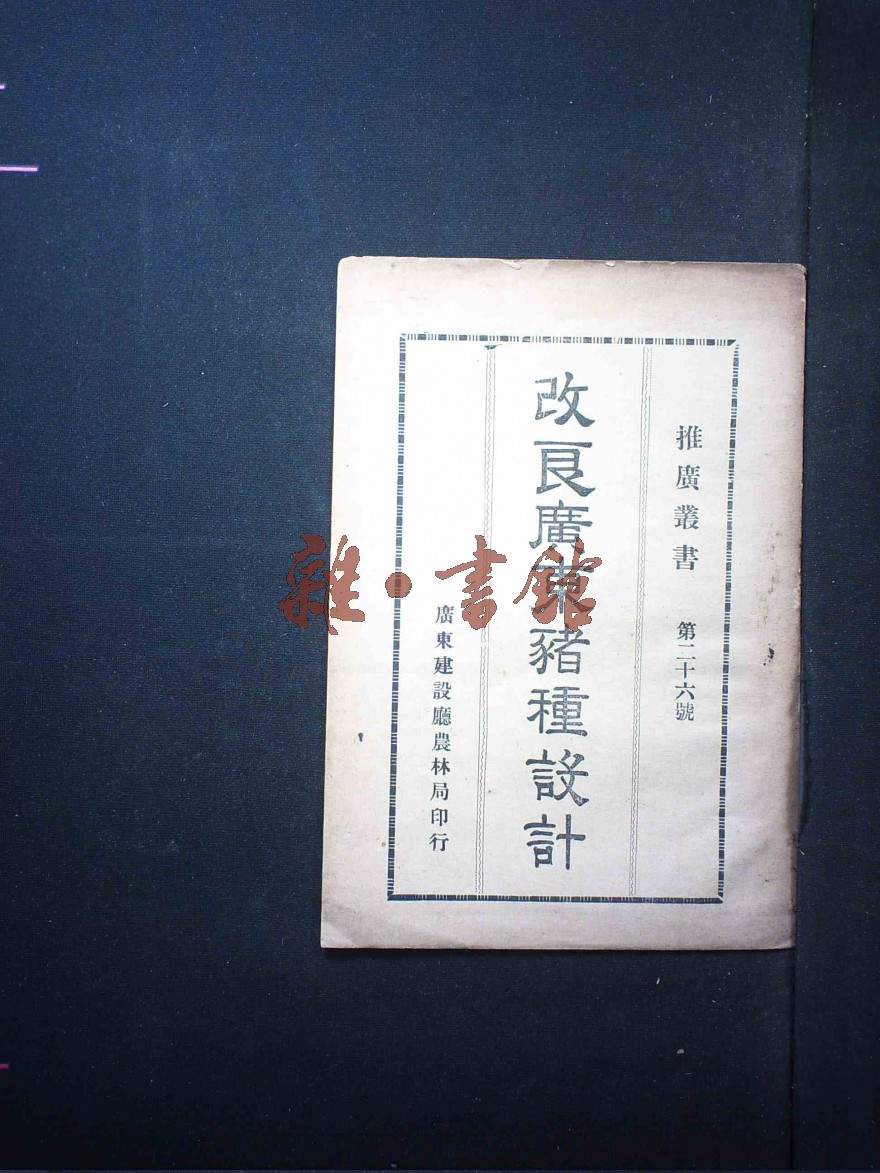 推廣叢書 第二十六號
改良廣東豬種設計
廣東建設廳農林局印行
雜·書館